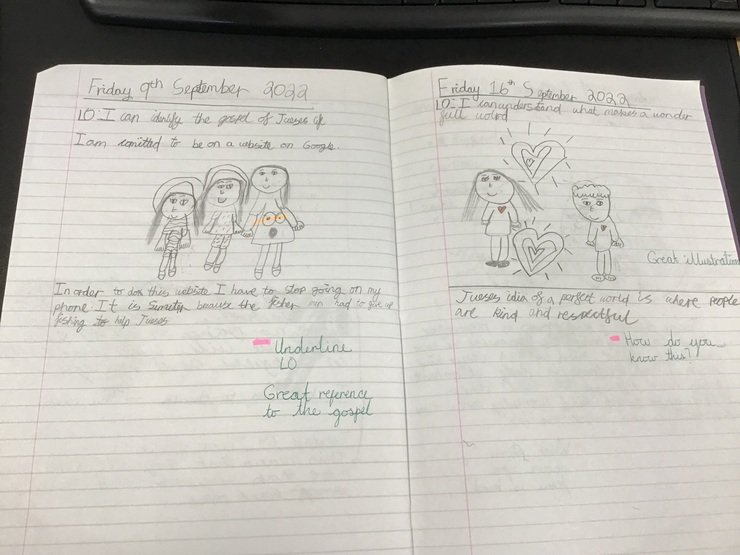 Friday 9th September 2022
LO: I can identify the gospel of Jueses
I am comitted to be on a website on Google.
In order to do this website I have to stop going on my
phone It is because the fisher men had to give up
fishing to help Jueses
Underline
LO
Great reference
to the gospel
Friday 16th September 2022
LO: I can understand what makes a wonder
full world
Great illustration
Jueses idia of a perfect world is where people
are kind and respectful
How do you
know this?